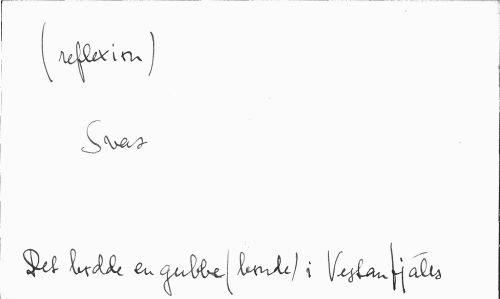 (reflexion)
Svar
Det bodde en gubbe (bonde) i Vestanfjäls